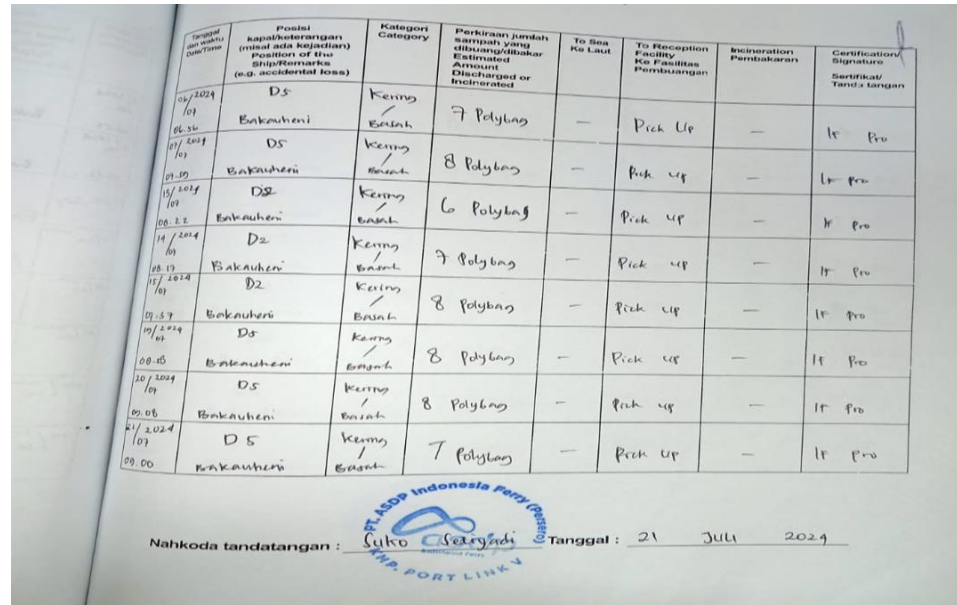 Tanggal dan waktu Date/Time
Posisi kapal/keterangan (misal ada kejadian) Position of the Ship/Remarks (e.g. accidental loss)
Kategori Category
Perkiraan jumlah sampah yang dibuang/dibakar Estimated Amount Discharged or Incinerated
To Sea Ke Laut
To Reception Facility Ke Fasilitas Pembuangan
Incineration Pembakaran
Certification/ Signature Sertifikat/ Tanda tangan
06/2024 /07 06.56 D5 Bakauheni Kering / Basah 7 Polybag — Pick Up — Pro
07/2024 /07 D5 Bakauheni Kering / Basah 8 Polybag — Pick up — Pro
13/2024 /07 08.22 Bakauheni Kering / Basah 6 Polybag — Pick up — Pro
14/2024 /07 08.17 D2 Bakauheni Kering / Basah 7 Polybag — Pick up — Pro
15/2024 /07 07.57 D2 Bakauheni Kering / Basah 8 Polybag — Pick up — Pro
19/2024 /07 D5 Bakauheni Kering / Basah 8 Polybag — Pick up — Pro
20/2024 /07 09.08 D5 Bakauheni Kering / Basah 8 Polybag — Pick up — Pro
21/2024 /07 09.00 D5 Bakauheni Kering / Basah 7 Polybag — Pick up — Pro
PT. ASDP Indonesia Ferry (Persero)
Nahkoda tandatangan : Suko Tanggal : 21 JULI 2024
KMP. PORT LINK V